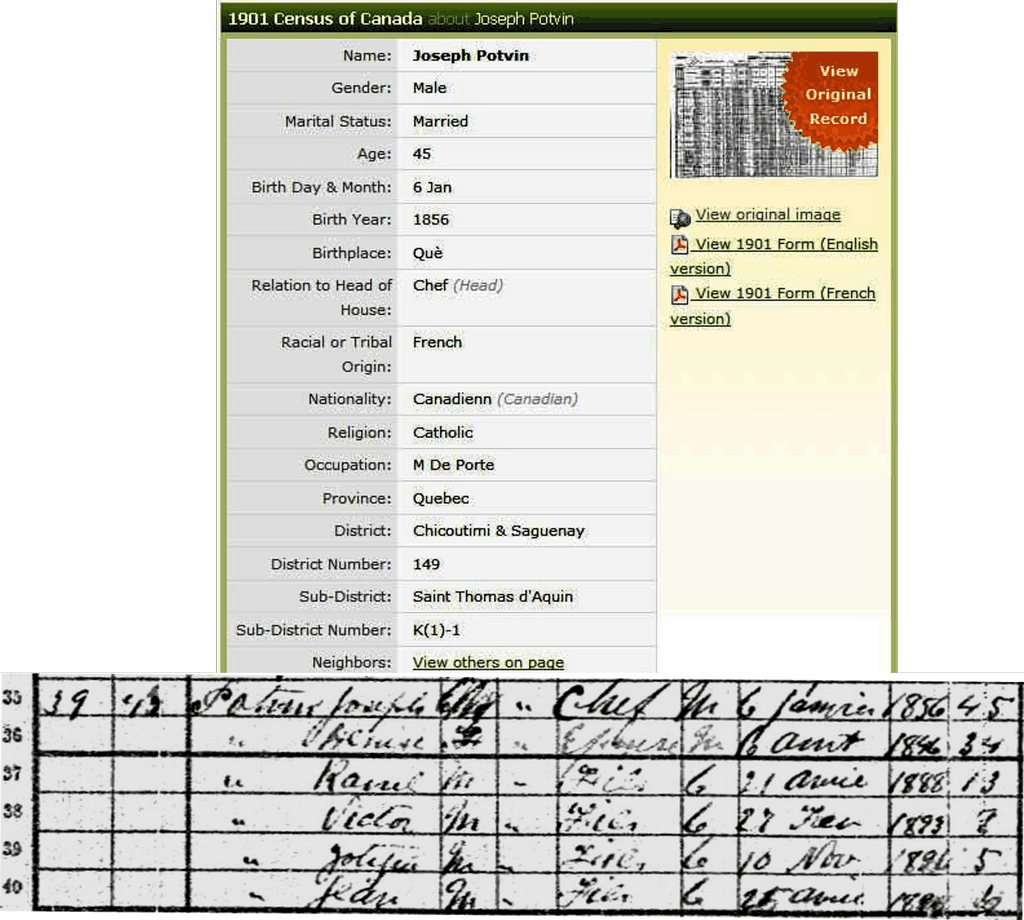 1901 Census of Canada about Joseph Potvin
Name: Joseph Potvin
Gender: Male
Marital Status: Married
Age: 45
Birth Day & Month: 6 Jan
Birth Year: 1856
Birthplace: Què
Relation to Head of
House: Chef (Head)
Racial or Tribal
Origin: French
Nationality: Canadienn (Canadian)
Religion: Catholic
Occupation: M De Porte
Province: Quebec
District: Chicoutimi & Saguenay
District Number: 149
Sub-District: Saint Thomas d'Aquin
Sub-District Number: K(1)-1
Neighbors: View others on page
View
Original
Record
View original image
View 1901 Form (English
version)
View 1901 Form (French
version)
35 39 43 Joseph " Chef M 6 1856 45
36 " " Epouse M 6 aout
37 " M - Fils C 21 1888 13
38 " Victor M " Fils C 27 Fev 1893
39 " M - Fils C 10 Nov 5
40 " Jean M - Fils C